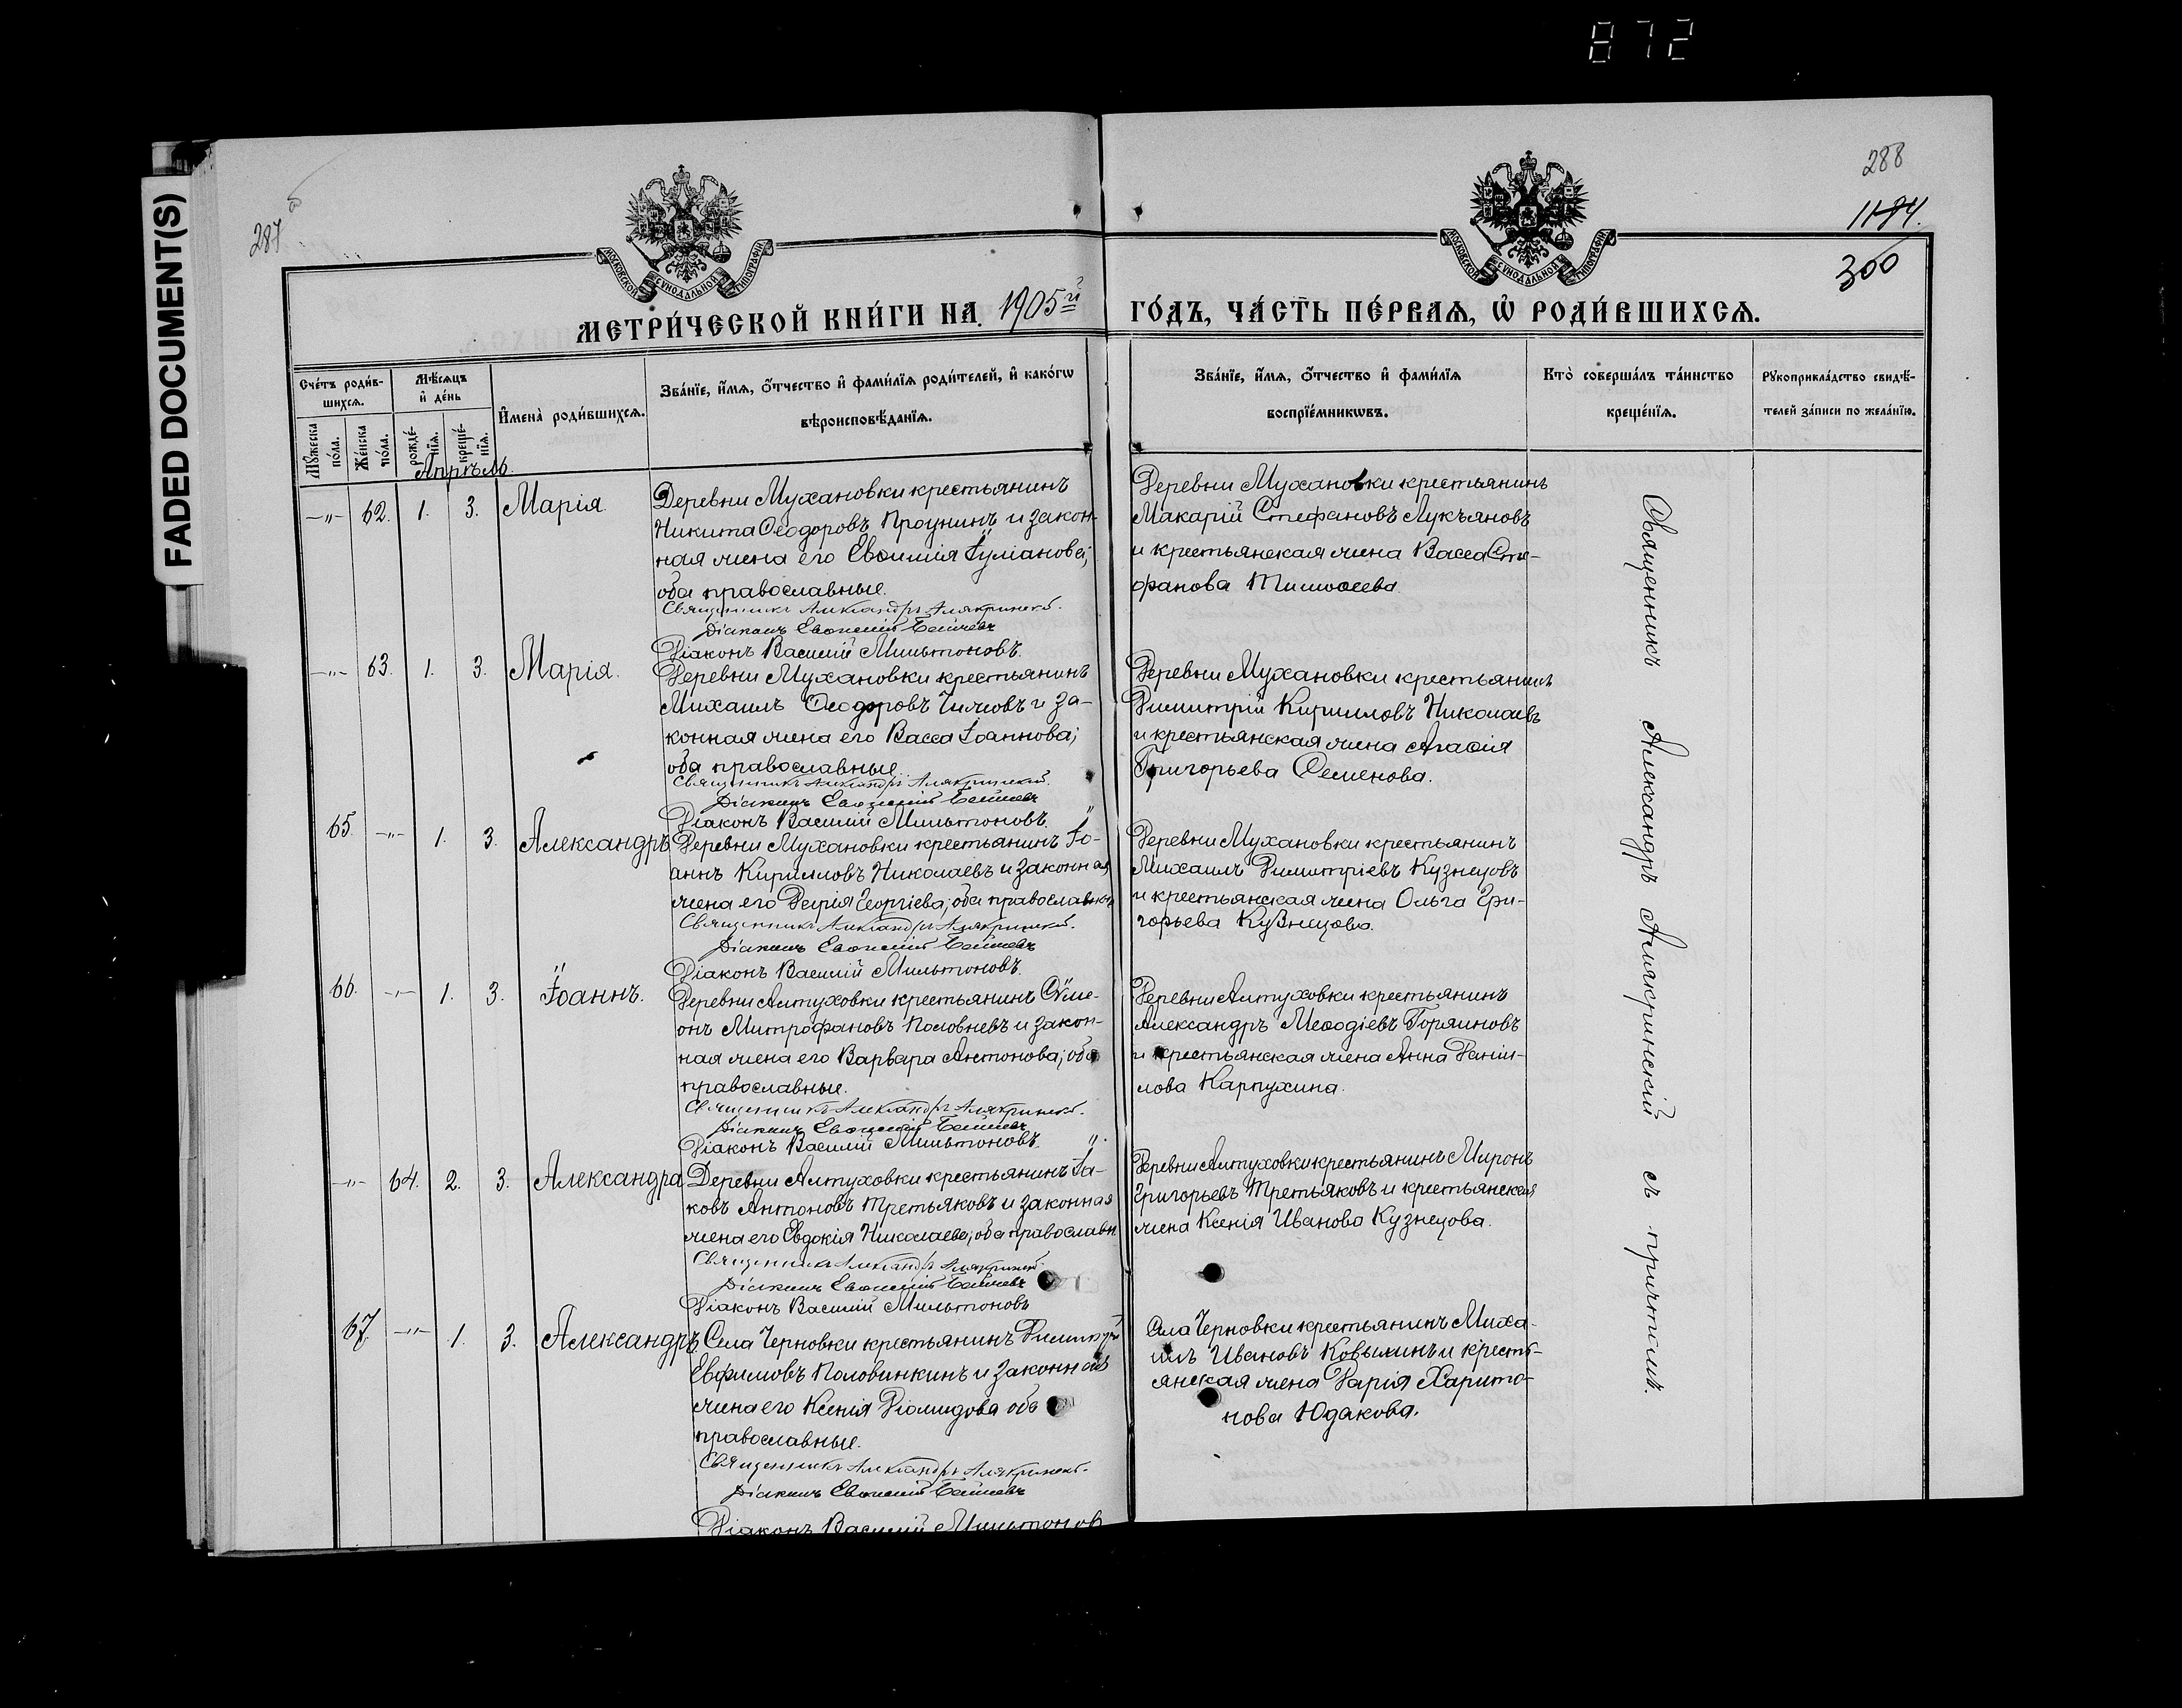 872
FADED DOCUMENT(S)
287
288
1184.
300
МОСКОВСКОЙ СѴНОДАЛЬНОЙ ТИПОГРАФІИ
МОСКОВСКОЙ СѴНОДАЛЬНОЙ ТИПОГРАФІИ
МЕТРИ́ЧЕСКОЙ КНИ́ГИ НА 1905й
ГО́ДЪ, ЧА́СТЬ ПЕ́РВАѦ, Ѡ҆ РОДИ́ВШИХСѦ.
Сче́тъ роди́в-
шихсѧ.
Мѣ́сѧцъ
и҆ де́нь
И҆мена̀ роди́вшихсѧ.
Зва́нїе, и҆́мѧ, ѻ҆́тчество и҆ фами́лїѧ роди́телей, и҆ како́гѡ
вѣроисповѣ́данїѧ.
Мꙋ́жеска
по́ла.
Же́нска
по́ла.
рожде́-
нїѧ.
креще́-
нїѧ.
Зва́нїе, и҆́мѧ, ѻ҆́тчество и҆ фами́лїѧ
воспрїе́мникѡвъ.
Кто̀ соверша́лъ та́инство
креще́нїѧ.
Рꙋкоприкла́дство свидѣ́-
телей за́писи по жела́нїю.
Апрѣль.
—"— 62. 1. 3. Марія.
Деревни Мухановки крестьянинъ
Никита Ѳеодоровъ и закон-
ная жена его Евѳимія Іуліанова;
оба православные.
Священникъ Александръ Алякринскій.
Діаконъ Евѳимій
Діаконъ Василій Мильтоновъ.
Деревни Мухановки крестьянинъ
Макарій Стефановъ Лукъяновъ
и крестьянская жена Васса Сте-
фанова Тимоѳеева.
—"— 63. 1. 3. Марія.
Деревни Мухановки крестьянинъ
Михаилъ Ѳеодоровъ и за-
конная жена его Васса Іоаннова;
оба православные.
Священникъ Александръ Алякринскій.
Діаконъ Евѳимій
Діаконъ Василій Мильтоновъ.
Деревни Мухановки крестьянинъ
Димитрій Кирилловъ Николаевъ
и крестьянская жена Агаѳія
Григорьева Семенова.
65. —"— 1. 3. Александръ
Деревни Мухановки крестьянинъ Іо-
аннъ Кирилловъ Николаевъ и законная
жена его Дарія Георгіева; оба православные
Священникъ Александръ Алякринскій.
Діаконъ Евѳимій
Діаконъ Василій Мильтоновъ.
Деревни Мухановки крестьянинъ
Михаилъ Димитріевъ Кузнецовъ
и крестьянская жена Ольга Гри-
горьева Кузнецова.
66. —"— 1. 3. Іоаннъ.
Деревни Алтуховки крестьянинъ Сѵме-
онъ Митрофановъ Половневъ и закон-
ная жена его Варвара Антонова; оба
православные.
Священникъ Александръ Алякринскій.
Діаконъ Евѳимій
Діаконъ Василій Мильтоновъ.
Деревни Алтуховки крестьянинъ
Александръ Меѳодіевъ Горяиновъ
и крестьянская жена Анна Дани-
лова Карпухина.
—"— 64. 2. 3. Александра
Деревни Алтуховки крестьянинъ Іа-
ковъ Антоновъ Третьяковъ и законная
жена его Евдокія Николаева; оба православн.
Священникъ Александръ Алякринскій
Діаконъ Евѳимій
Діаконъ Василій Мильтоновъ
Деревни Алтуховки крестьянинъ Миронъ
Григорьевъ Третьяковъ и крестьянская
жена Ксенія Иванова Кузнецова.
67. —"— 1. 3. Александръ.
Села Черновки крестьянинъ Димитрій
Евфимовъ Половинкинъ и законная
жена его Ксенія Діомидова оба
православные.
Священникъ Александръ Алякринскій.
Діаконъ Евѳимій
Діаконъ Василій Мильтонов
Села Черновки крестьянинъ Миха-
илъ Ивановъ Ковылинъ и кресть-
янская жена Дарія Харито-
нова Юдакова.
Священникъ Александръ Алякринскій съ причтомъ.